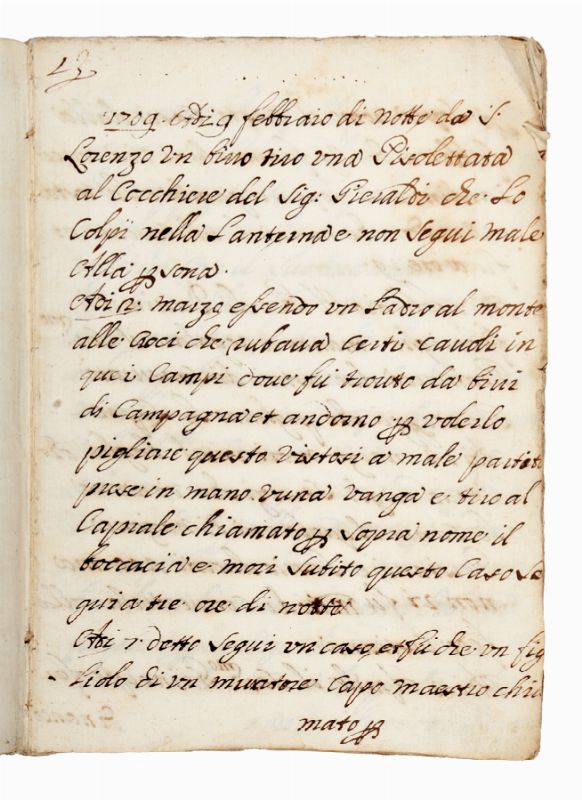 1709. Adi 9 febbraio di notte da S.
Lorenzo un birro tiro una Pisolettata
al Cocchiere del Sig: Pieraldi che Lo
Colpi nella Lanterna e non Segui male
Alla p sona.
Adi marzo essendo un Ladro al monte
alle Croci che rubava Certi Cavoli in
quei Campi dove fu trovto da birri
di Campagna et andorno p volerlo
pigliare questo vistosi a male partit
prese in mano vuna vanga e tiro al
Caprale chiamato p sopra nome il
boccacia e mori Subito questo Caso se
guia tre ore di notte
Adi detto Segui un caso, et fu che un fig
liolo di un muratore Capo maestro chia
mato p